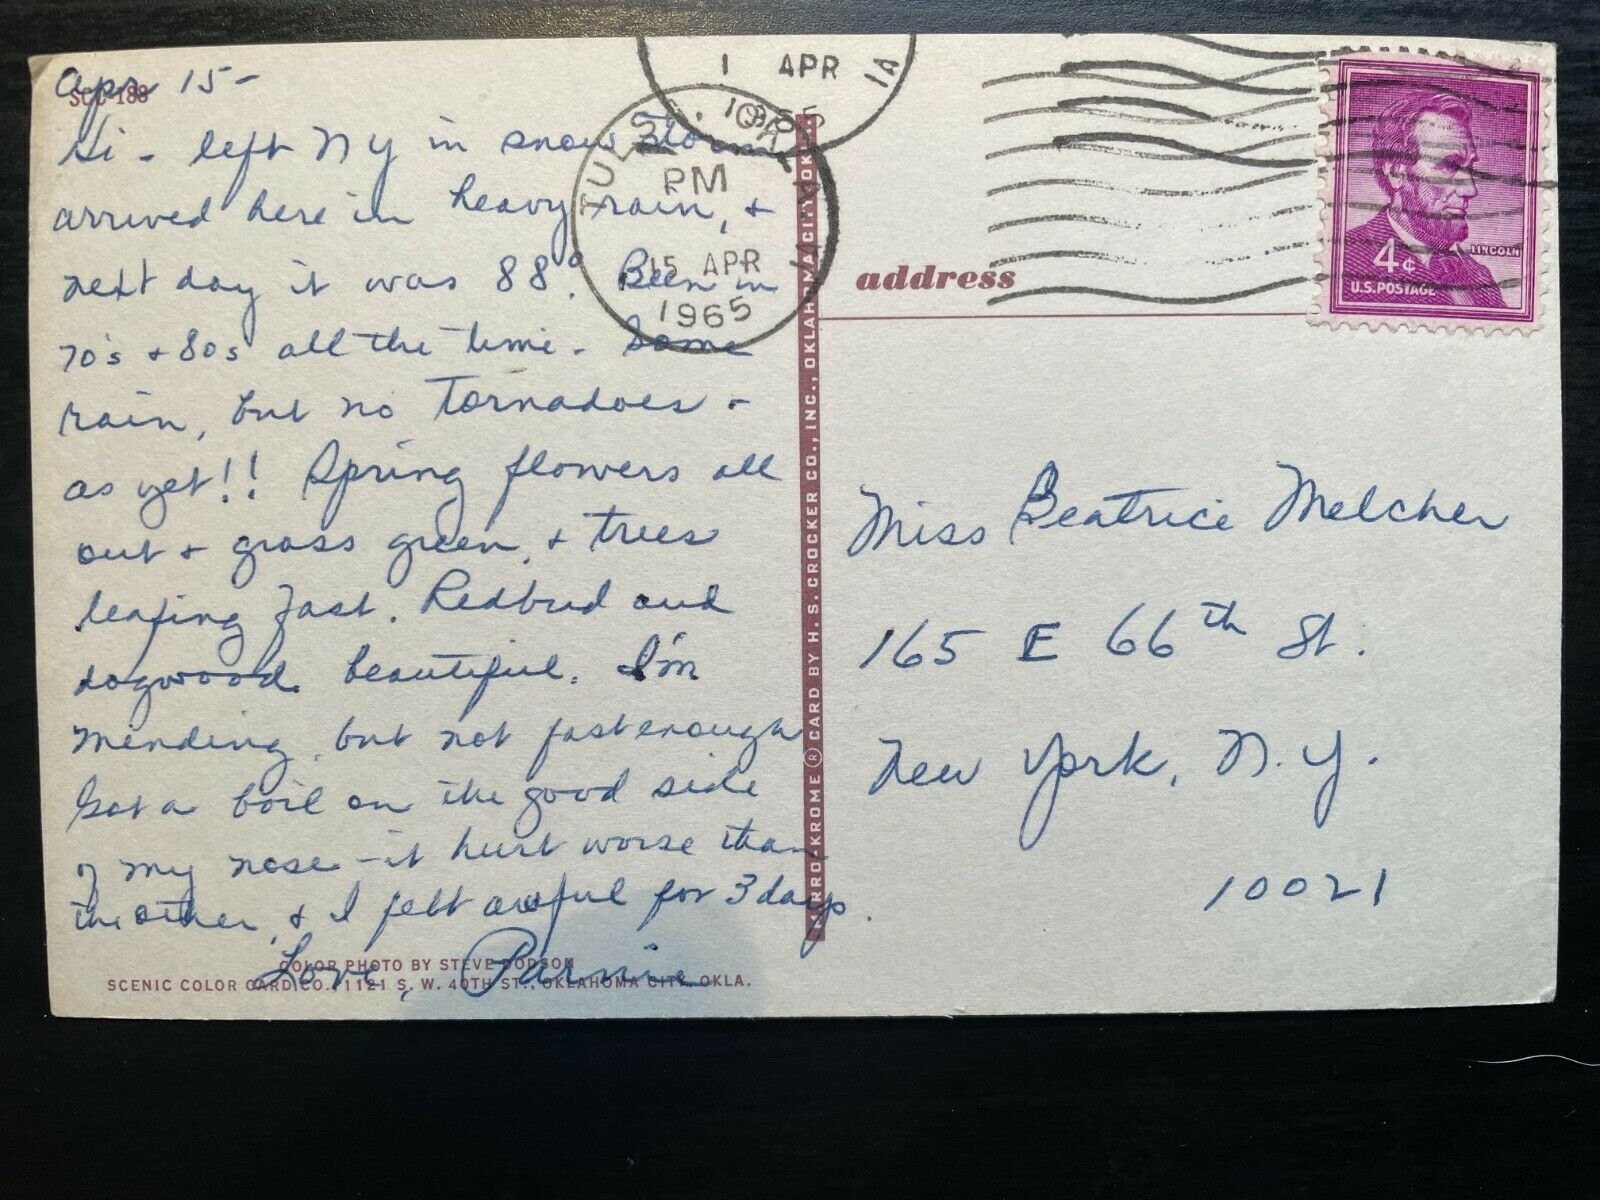 Apr 15-
SCC-188
Hi - left NY in snow storm
arrived here in heavy rain, &
next day it was 88°. Been in
70's & 80s all the time. Some
rain, but no Tornadoes -
as yet!! Spring flowers all
out & grass green, & trees
leafing fast. Redbud and
dogwood beautiful. I'm
mending, but not fast enough
Got a boil on the good side
of my nose - it hurt worse than
the other, & I felt awful for 3 days.
Love,
COLOR PHOTO BY STEVE DODSON
SCENIC COLOR CARD CO., 1121 S. W. 40TH ST., OKLAHOMA CITY, OKLA.
MIRRO-KROME ® CARD BY H. S. CROCKER CO., INC., OKLAHOMA CITY, OKLA.
1 APR
TULSA, OKLA
PM
15 APR
1965
address
LINCOLN
4¢
U.S. POSTAGE
Miss Beatrice Melcher
165 E 66th St.
New York, N.Y.
10021